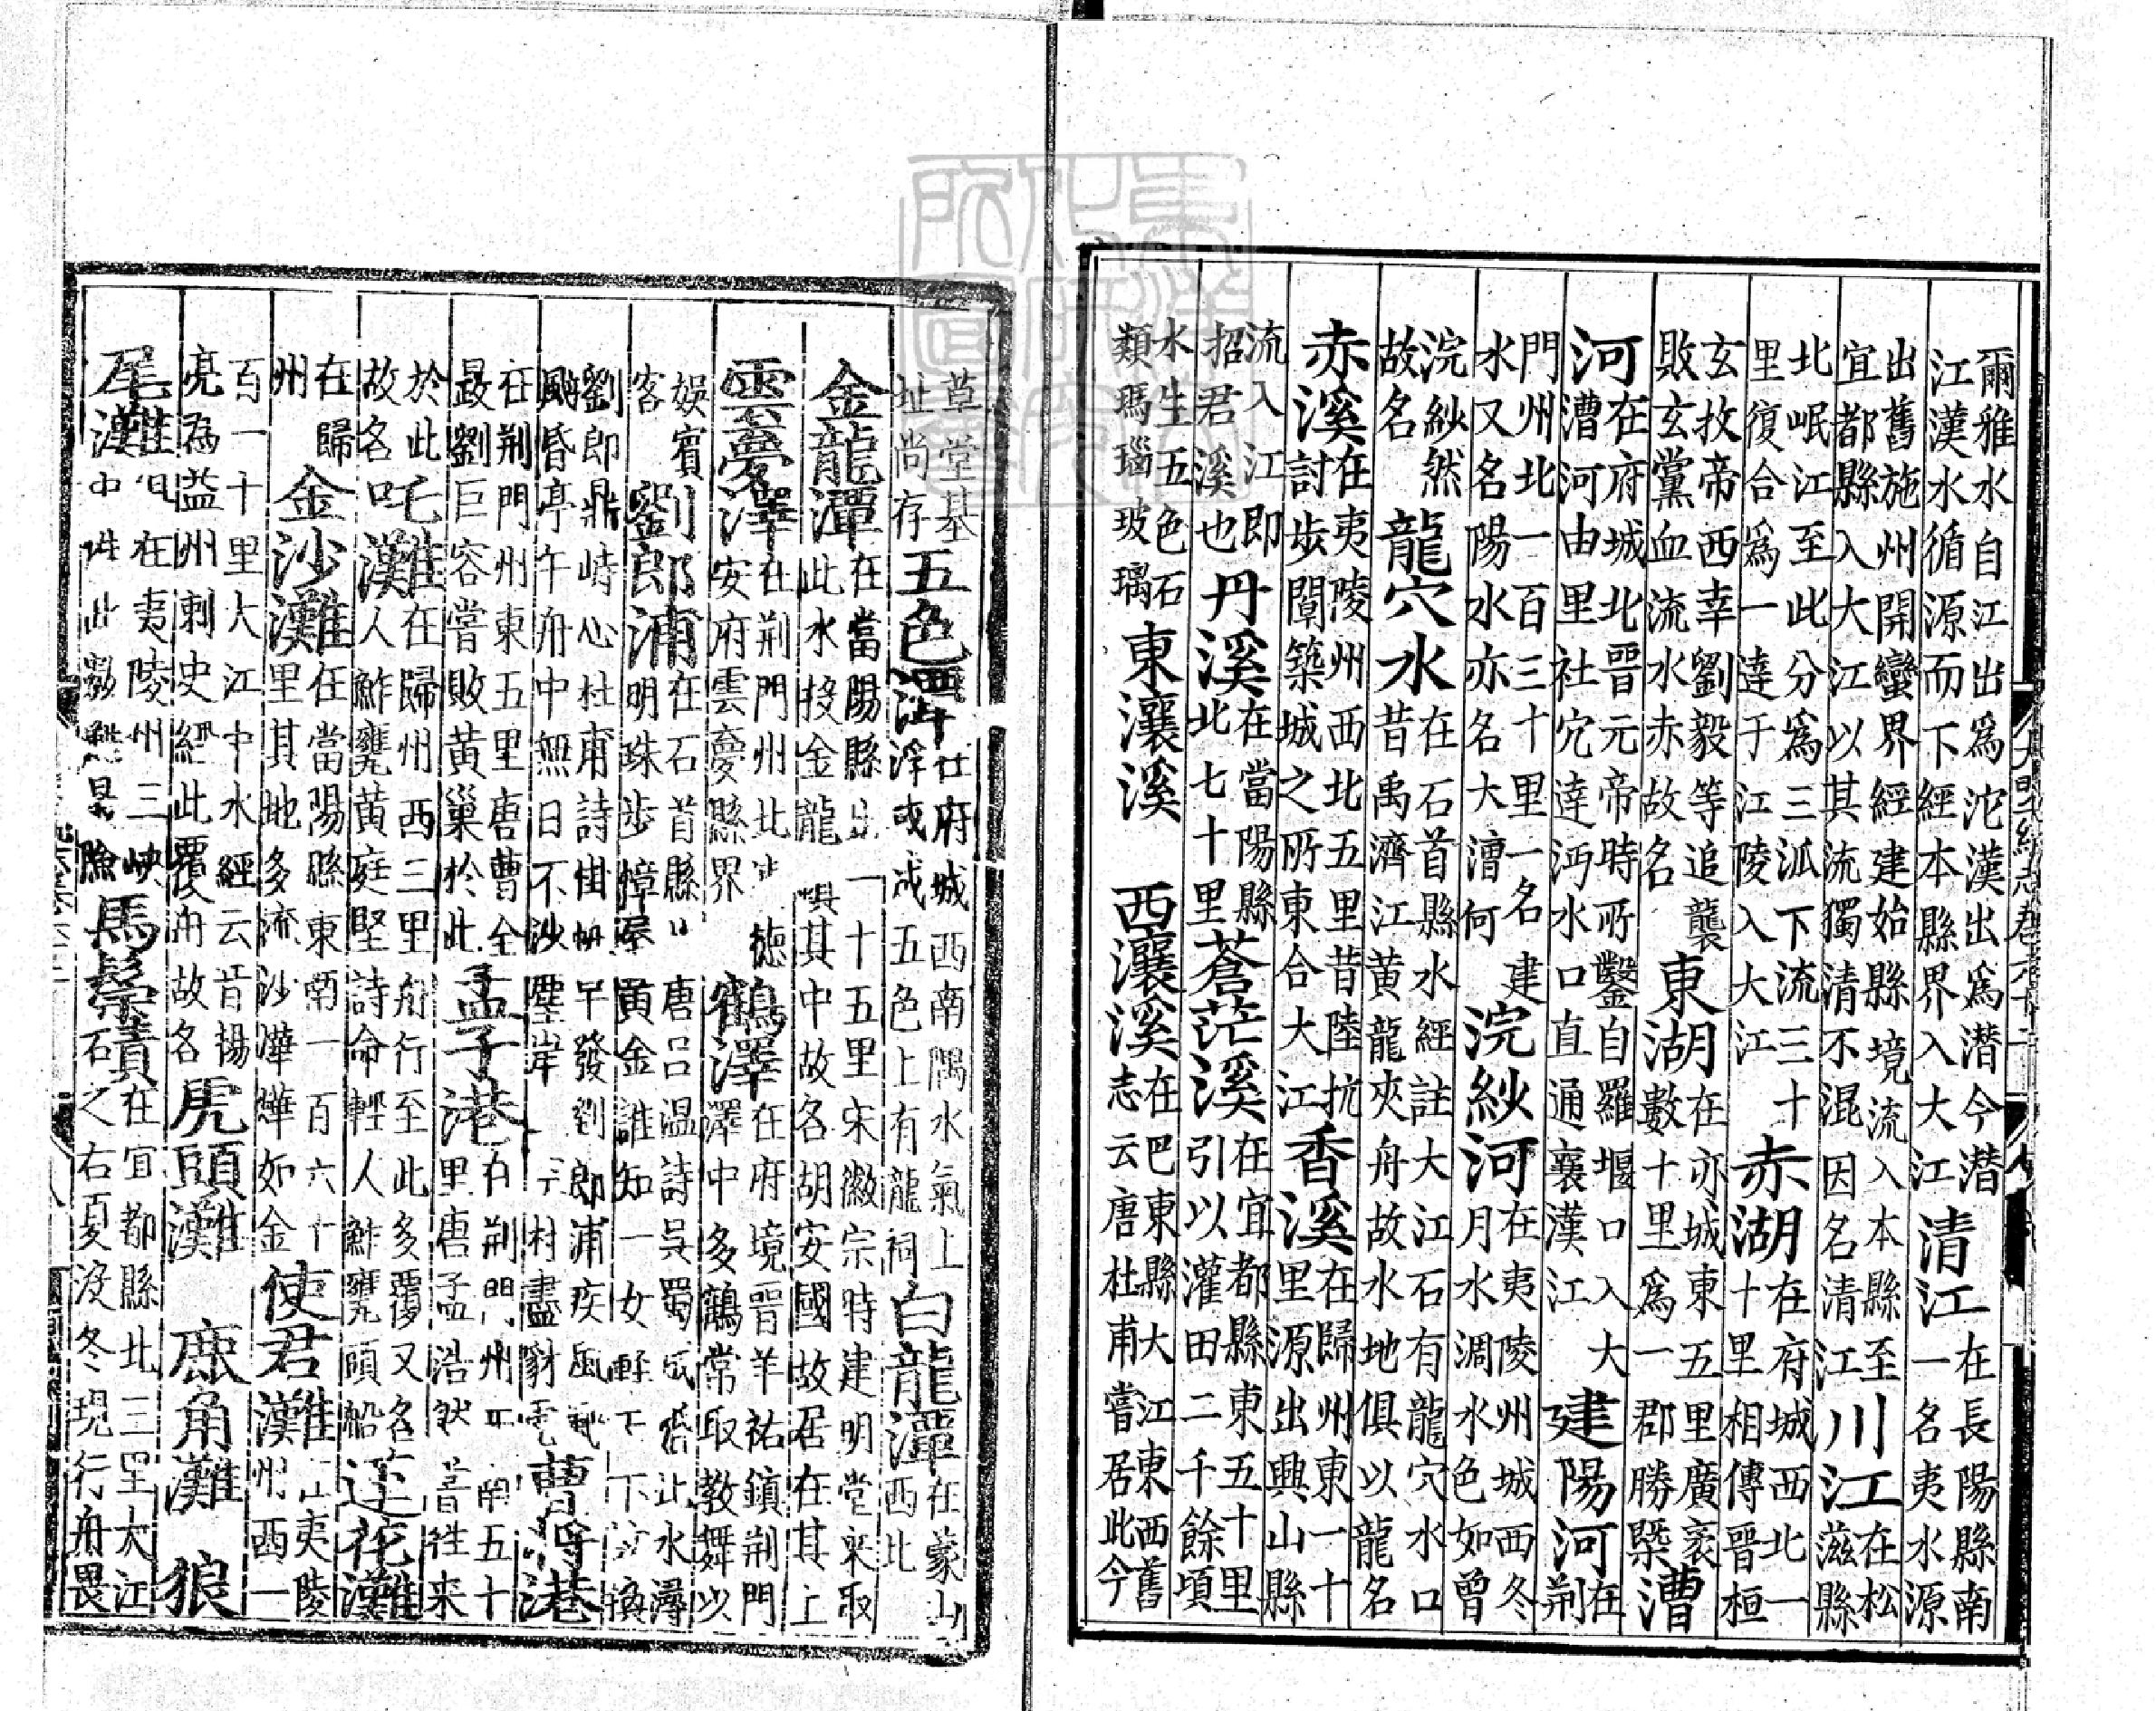 爾雅水自江出爲沱漢出爲潛今潛
江漢水循源而下經本縣界入大江
清江
在長陽縣南
一名夷水源
出舊施州開蠻界經建始縣境流入本縣至
宜都縣入大江以其流獨清不混因名清江
川江
在松
滋縣
北岷江至此分爲三泒下流三十
里復合爲一達于江陵入大江
赤湖
在府城西北一
十里相傳晉桓
玄攻帝西幸劉毅等追襲
敗玄玄黨血流水赤故名
東湖
在亦城東五里廣衮
數十里爲一郡勝槩
漕
河
在府城北晉元帝時所鑿自羅堰口入大
漕河由里社穴達沔水口直通襄漢江
建陽河
在
荆
門州北一百三十里一名建
水又名陽水亦名大漕何
浣紗河
在夷陵州城西冬
月水涸水色如曾
浣紗然
故名
龍穴水
在石首縣水經註大江石有龍穴水口
昔禹濟江黄龍夾舟故水地俱以龍名
赤溪
在夷陵州西北五里昔陸抗
討步闡築城之所東合大江
香溪
在歸州東一十
里源出興山縣
流入江即
招君溪也
丹溪
在當陽縣
北七十里
蒼茫溪
在宜都縣東五十里
引以灌田二千餘頃
水生五色石
類瑪瑙玻璃
東瀼溪 西瀼溪
在巴東縣大江東西舊
志云唐杜甫嘗居此今
草堂基
址尚存
五色潭
在府城西南隅水氣上
浮或成五色上有龍祠
白龍潭
在蒙山
西北
金龍潭
在當陽縣 一十五里宋徽宗時建明堂采取
此水投金龍 其中故名胡安國故居在其上
雲夢澤
在荆門州北
安府雲夢縣界
鶴澤
在府境晉羊祜鎮荆門
澤中多鶴常取教舞以
娱賓
客
劉郎浦
在石首縣 唐吕温詩吳蜀成 此水潯
明珠步幛屋黄金誰知一女輕 下
劉郎鼎峙心杜甫詩掛帆早發劉郎浦疾風
颭昏亭午舟中無日不沙塵岸 村盡豺
曹 港
在荆門州東五里唐曹全
㝡劉巨容嘗敗黄巢於此
孟子港
在荆門州 南五十
里唐孟浩然昔往来
於此
故名
吒灘
在歸州西三里舟行至此多覆又名
人鮓甕黄庭堅詩命輕人鮓甕頭船
蓮花灘
在歸
州
金沙灘
在當陽縣東南一百六十
里其地多流沙燁燁如金
使君灘
在夷陵
州西一
百一十里大江中水經云昔楊
亮爲益州刺史經此覆舟故名
虎頭灘 鹿角灘 狼
尾灘
在夷陵州三峽
中 此數 最險
馬鬃磧
在宜都縣北三里大江
石之右夏没冬現行舟畏